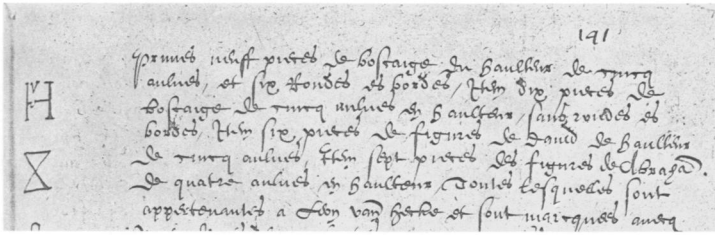 141
Prunes neuff pieces de boscaige du haulteur de cincq
aulnes, et six Rondes es bordes, Item dix pieces de
boscaige de cincq aulnes en haulteur, sans rondes es
bordes, Item six pieces de figures de david de haulteur
de cincq aulnes, Item sept pieces des figures de Abraham.
de quatre aulnes en haulteur, Toutes lesquelles sont
appertenantes a Leon vanden hecke et sont marcquees avecq